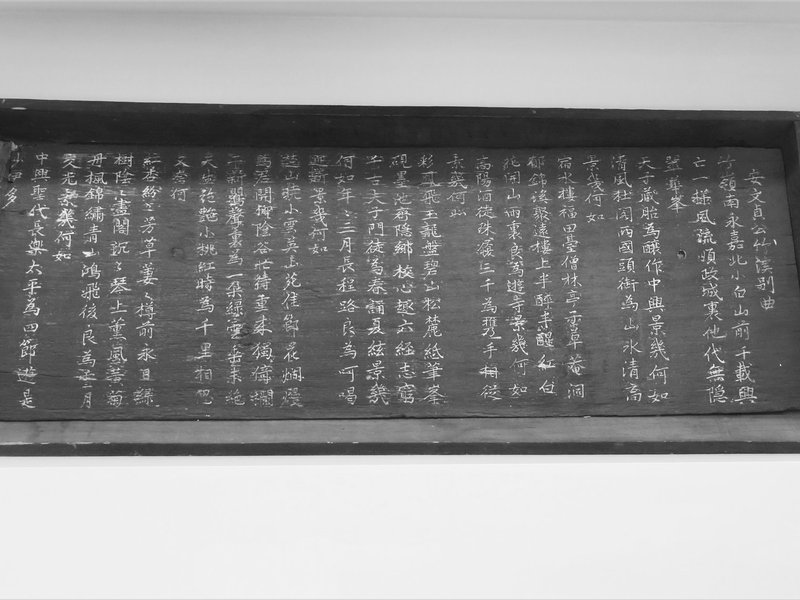 安文貞公竹溪別曲
竹嶺南永嘉北小白山前千載興
亡一樣風流順政城裏他代無隱
翠華峯
天子藏胎為釀作中興景幾何如
清風杜閣兩國頭銜為山水清高
景幾何如
宿水樓福田臺僧林亭子草菴洞
郁錦溪聚遠樓上半醉半醒紅白
花開山雨裏良為遊寺景幾何如
高陽酒徒珠履三千為携手相從
景幾何如
彩鳳飛玉龍盤碧山松麓紙筆峯
硯墨池齊隱鄉校心趣六經志窮
千古夫子門徒為春誦夏絃景幾
何如年〻三月長程路良為呵喝
迎新景幾何如
楚山曉小雲英山苑佳節花爛熳
為君開柳陰谷忙待重來獨倚欄
干新鶯聲裏為一朶綠雲垂未絶
天生絶艶小桃紅時為千里相思
又柰何
紅杏紛〻芳草萋〻樽前永日綠
樹陰〻畫閣沉〻琴上薰風黃菊
丹楓錦繡青山鴻飛後良為雪月
交光景幾何如
中興聖代長樂太平為四節遊是
沙伊多